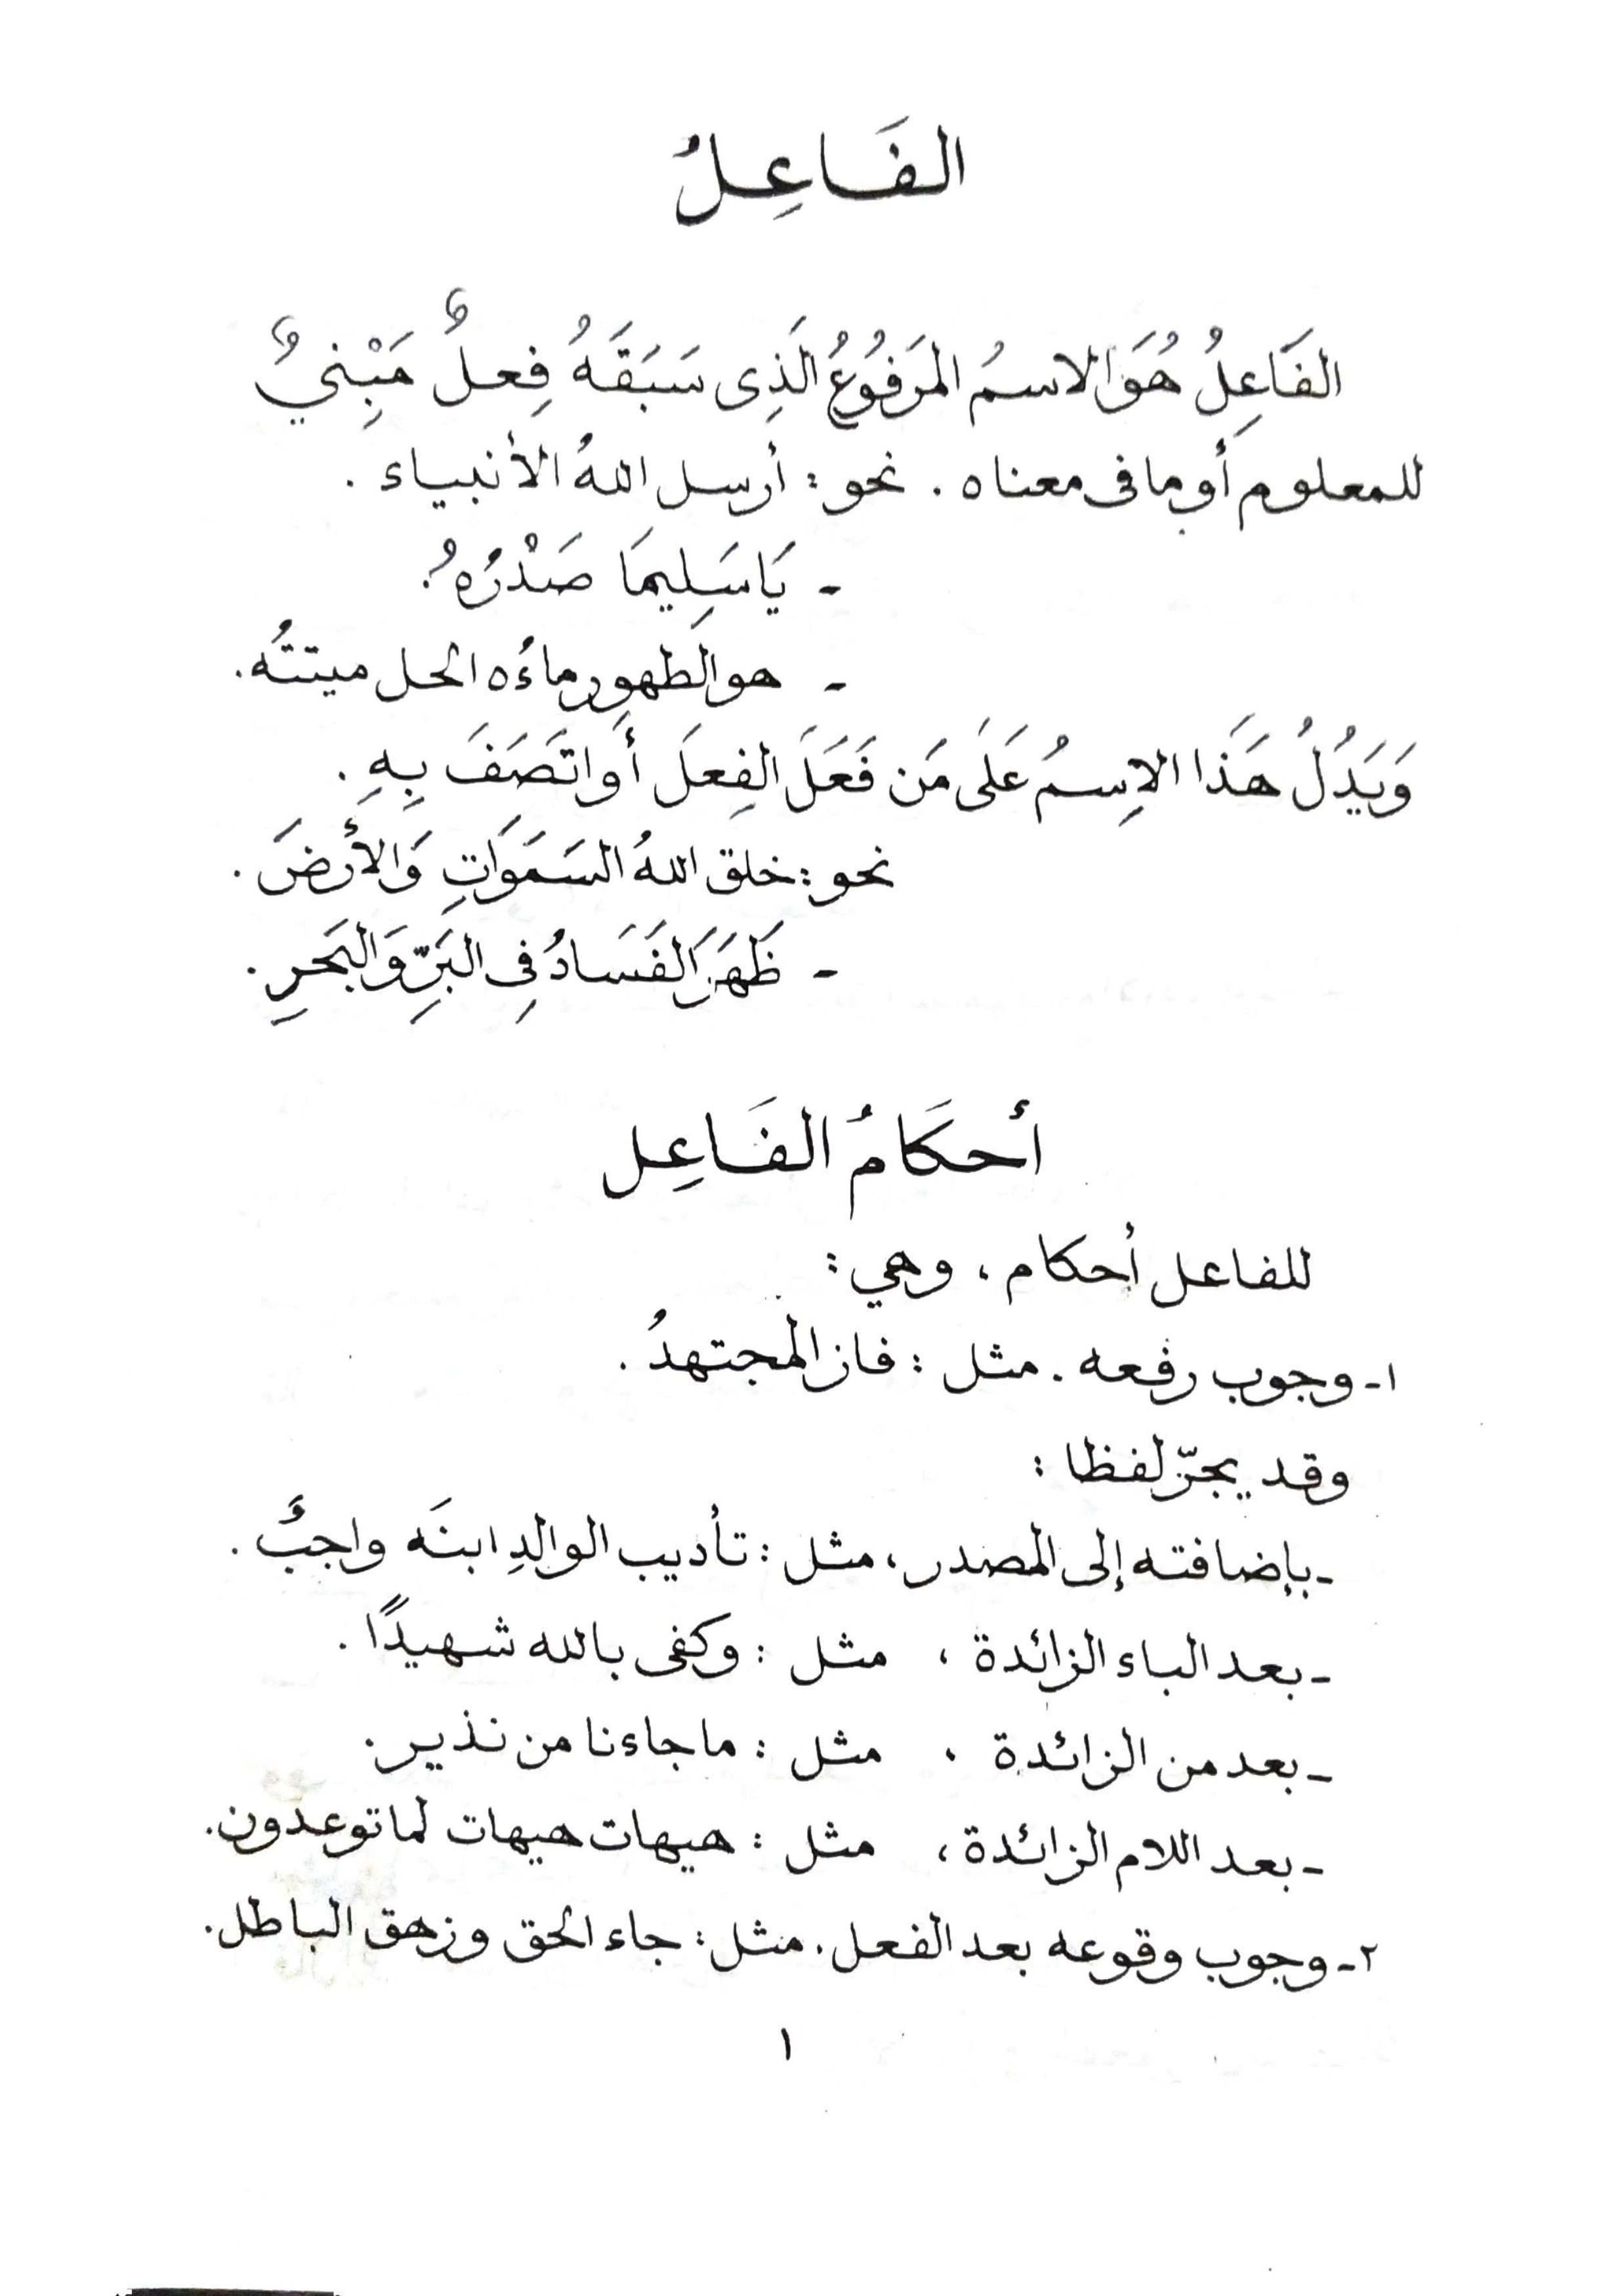 الفَاعِلُ
الفَاعِلُ هُوَ الاسمُ المَرفُوعُ الَذِى سَبَقَهُ فِعلٌ مَبْنِيٌّ
للمعلوم أو ما فى معناه . نحو : أرسل اللهُ الأنبياء .
- يَا سَلِيمَا صَدْرُهُ .
- هو الطهور ماءُه الحل ميتتُه .
وَيَدُلُ هَذَا الاِسمُ عَلَى مَن فَعَلَ الفِعلَ أَو اتَصَفَ بِهِ .
نحو : خلق اللهُ السَمَوَاتِ وَالأَرضَ .
- ظَهَرَ الفَسَادُ فِى البَرِّ وَالبَحرِ .
أحكَامُ الفَاعِل
للفاعل أحكام ، وهي :
١- وجوب رفعه . مثل : فاز المجتهدُ .
وقد يجرّ لفظا :
- بإضافته إلى المصدر ، مثل : تأديب الوالدِ ابنَه واجبٌ .
- بعد الباء الزائدة ، مثل : وكفى بالله شهيدًا .
- بعد من الزائدة ، مثل : ما جاءنا من نذير .
- بعد اللام الزائدة ، مثل : هيهات هيهات لما توعدون .
٢- وجوب وقوعه بعد الفعل . مثل : جاء الحق وزهق الباطل .
١